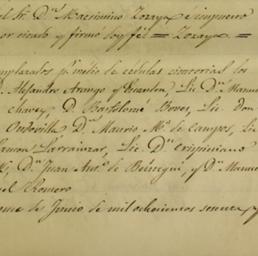 el Sr. Dn. Maximino Zozaya é impuesto
por oirlo y firmó doy fé = Zozaya =
emplazados pr. medio de cedulas citatorias los
Dn. Alejandro Arango y Escandon, Lic. Dn. Manuel
chavez, D. Bartolomé Lic. Don
Dn. Mauro, Ma. de Campos, Lic.
Ramon Larrainzar, Lic. Dn. Crispiniano
Dn. Juan Anto. de Béistegui, y Dn. Manuel
el Romero
de Junio de mil ochocientos sesenta y